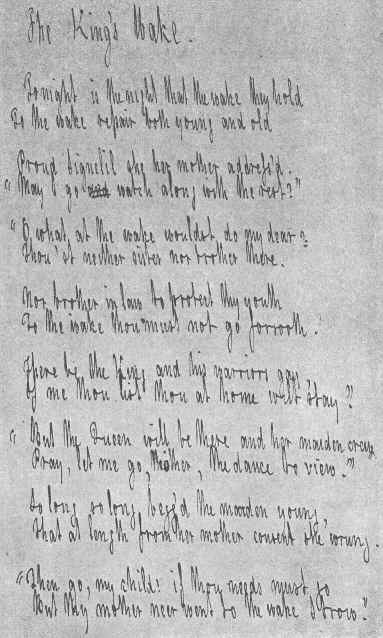 The King's Wake.
Tonight is the night that the wake they hold
To the wake repair both young and old
Proud Signelil she her mother address'd.
"May I go and watch along with the rest?"
"O, what at the wake wouldst do my dear?
Thou'st neither sister nor brother there.
Nor brother in law to protect thy youth
To the wake thou must not go forsooth.
There be the King and his warriors gay,
If me thou list thou at home wilt stay?
"But the Queen will be there and her maiden crew
Pray, let me go, Mother, the dance to view."
So long so long begg'd the maiden young,
That at length from her mother consent she wrung.
"Then go, my child! if thou needs must go
But thy mother ne'er went to the wake I trow."